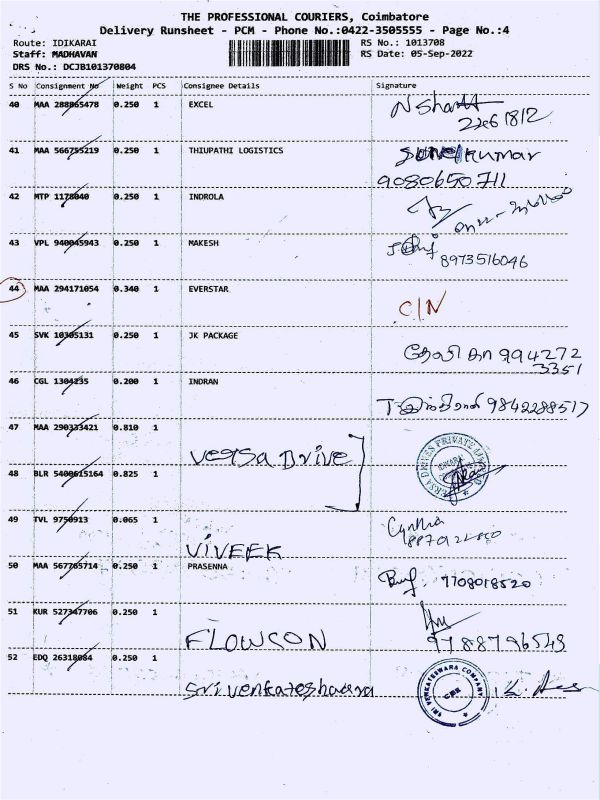 THE PROFESSIONAL COURIERS, Coimbatore
Delivery Runsheet - PCM - Phone No.:0422-3505555 - Page No.:4
Route: IDIKARAI RS No.: 1013708
Staff: MADHAVAN RS Date: 05-Sep-2022
DRS No.: DCJB101370804
S No Consignment No Weight PCS Consignee Details Signature
40 MAA 288865478 0.250 1 EXCEL
41 MAA 566755219 0.250 1 THIUPATHI LOGISTICS kumar
9080650711
42 MTP 1178040 0.250 1 INDROLA
43 VPL 940045943 0.250 1 MAKESH
8973516046
44 MAA 294171054 0.340 1 EVERSTAR C/N
45 SVK 10305131 0.250 1 JK PACKAGE 994272
3351
46 CGL 1304235 0.200 1 INDRAN 9842288517
47 MAA 290333421 0.810 1
Versa Drive
48 BLR 5400615164 0.825 1
49 TVL 9750913 0.065 1 Cynthia
VIVEEK
50 MAA 567765714 0.250 1 PRASENNA 7708018520
51 KUR 527347706 0.250 1
FLOWCON 9788796549
52 EDQ 26318084 0.250 1
Sri venkateshwara
SRI VENKATESWARA COMPANY
CBE